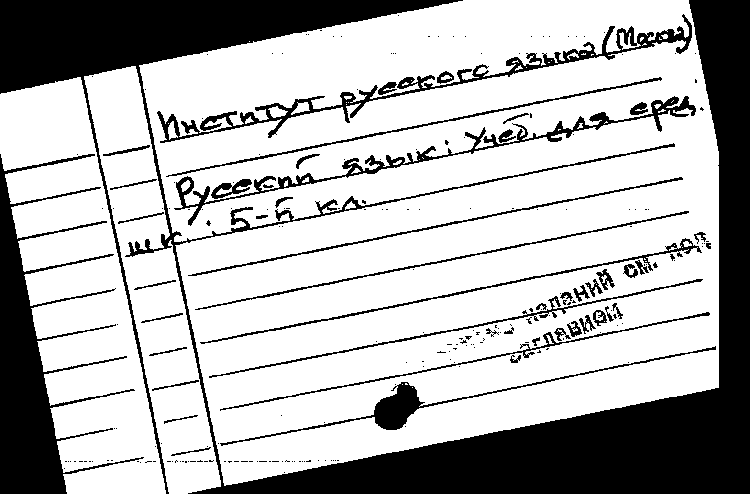 Институт русского языка (Москва)
Русский язык: Учеб. для сред.
шк.: 5-й кл.
изданий см. под
заглавием